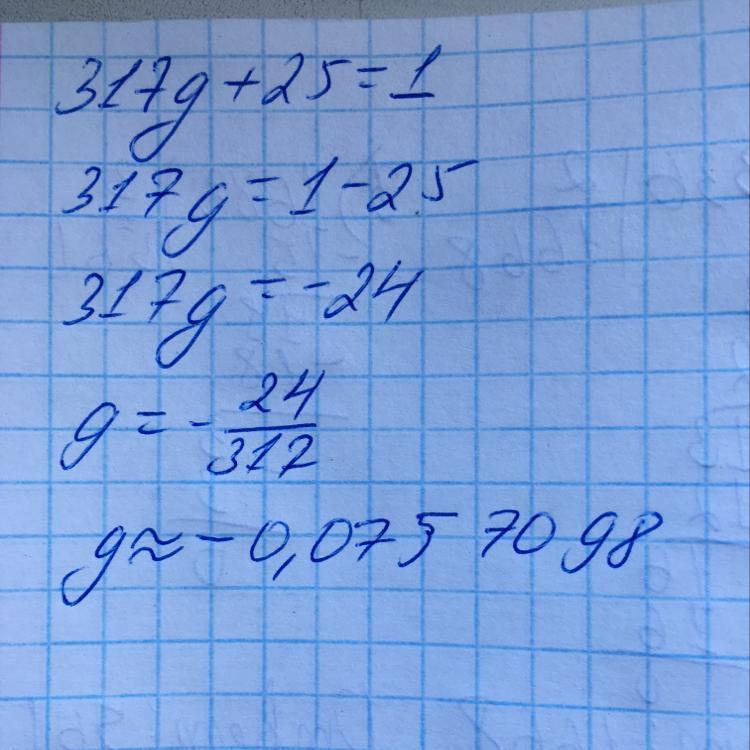 317g + 25 = 1
317g = 1 - 25
317g = -24
g = - 24/317
g ≈ -0,0757098